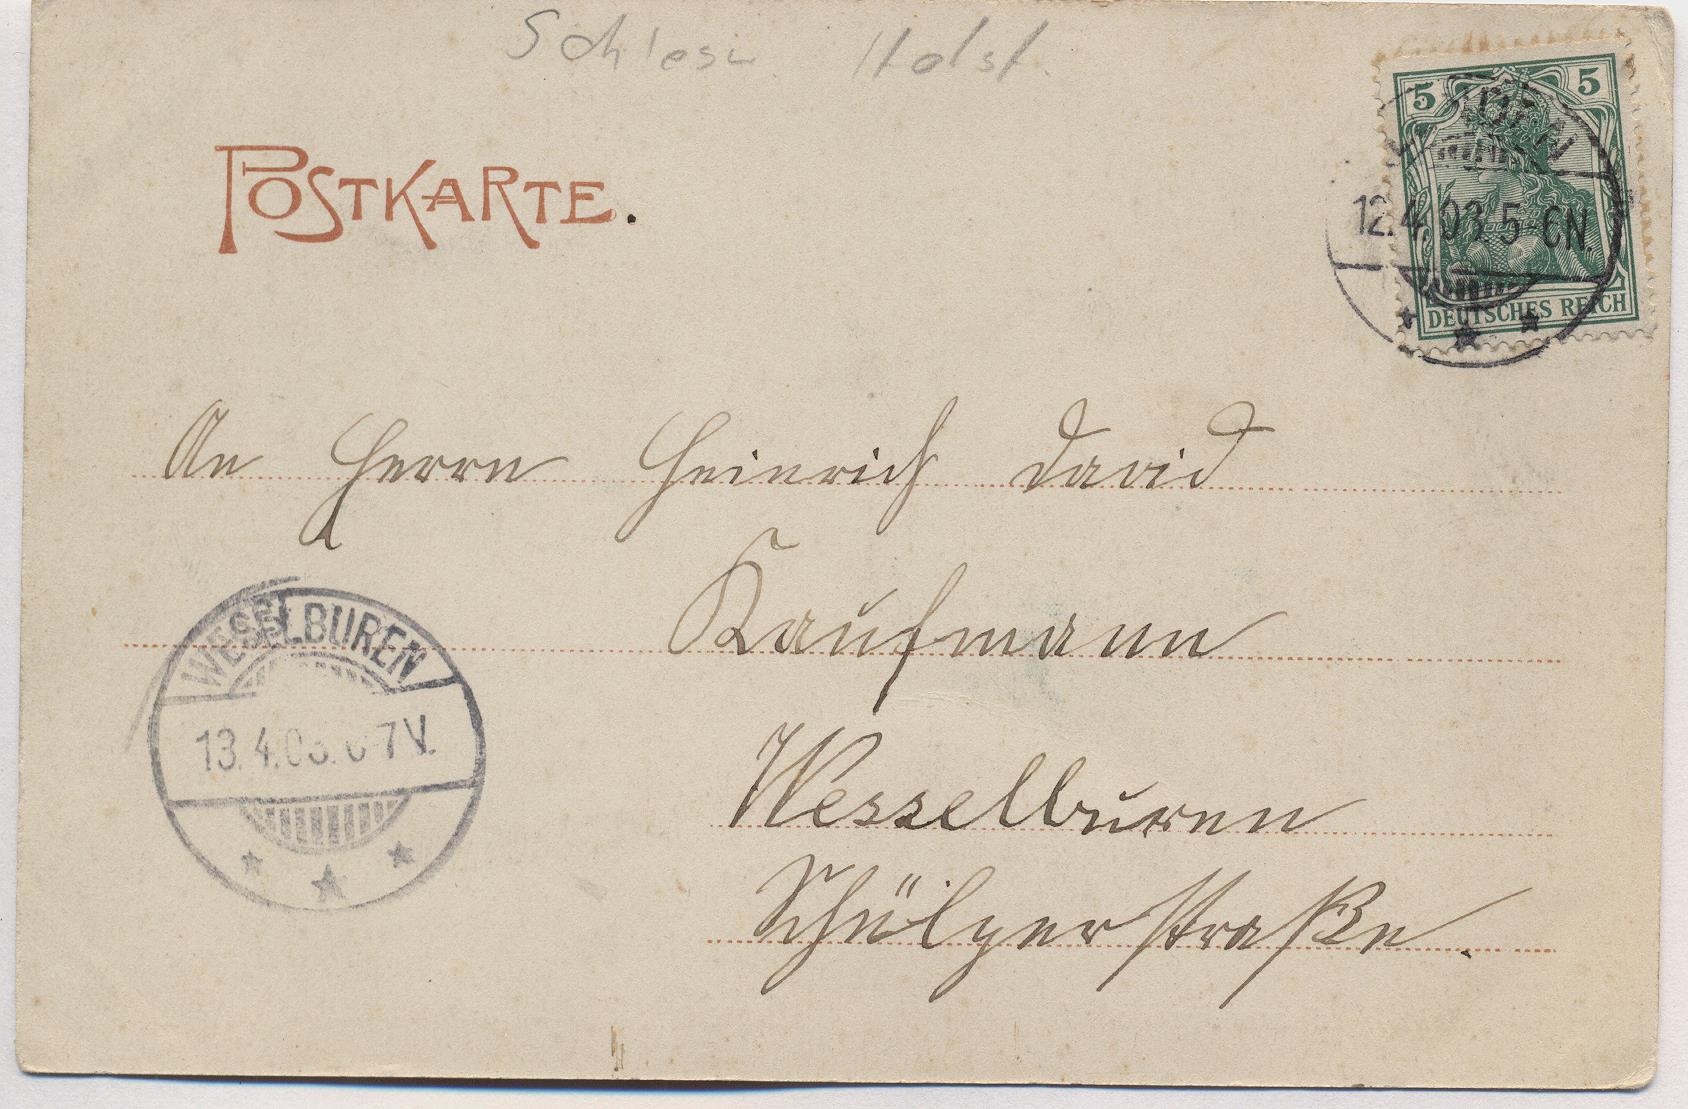 Schlesw. Holst.
POSTKARTE.
5 5
12.4.03. 5-6N.
DEUTSCHES REICH
An Herrn Heinrich David
Kaufmann
WESSELBUREN
13.4.03. 6-7V.
Wesselburen
Schülperstraße.